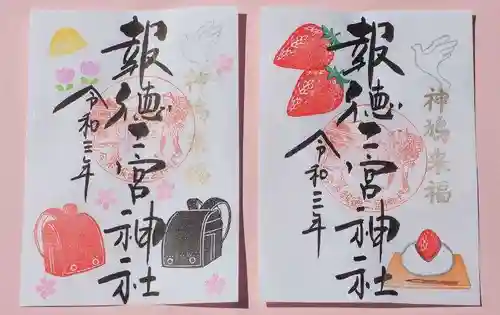 報徳二宮神社
令和三年
神鳩来福
報徳二宮神社
令和三年
神鳩来福